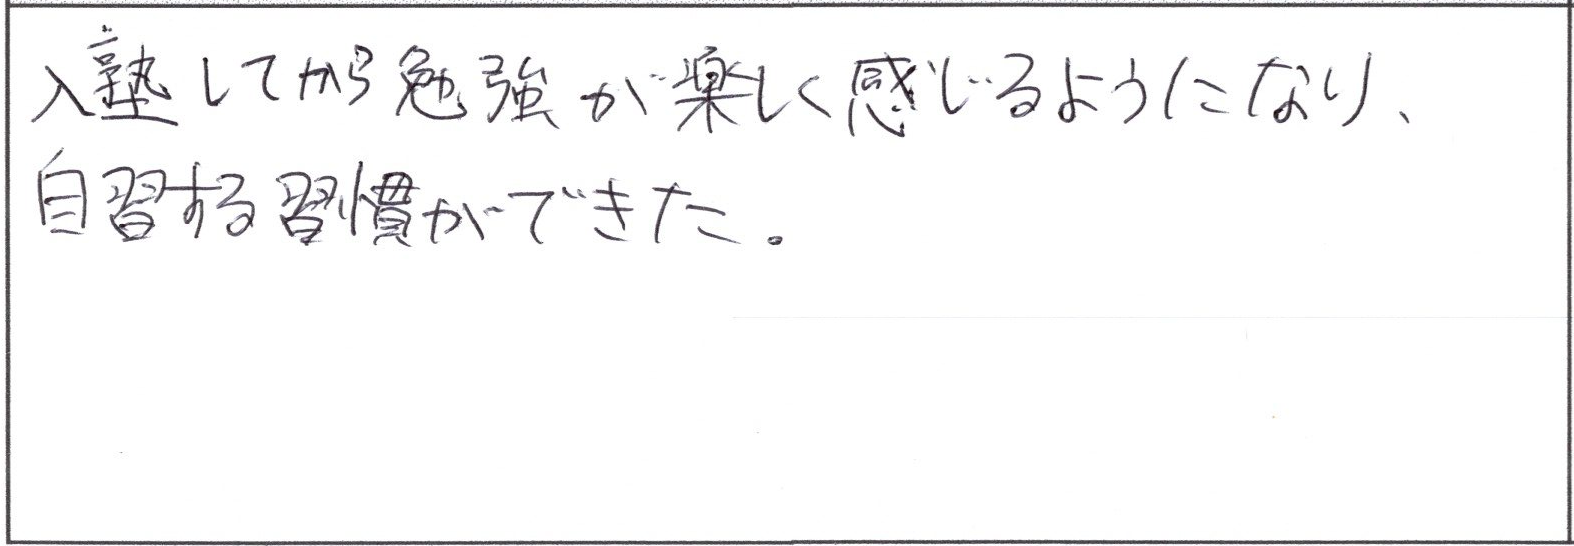 入塾してから勉強が楽しく感じるようになり、
自習する習慣ができた。